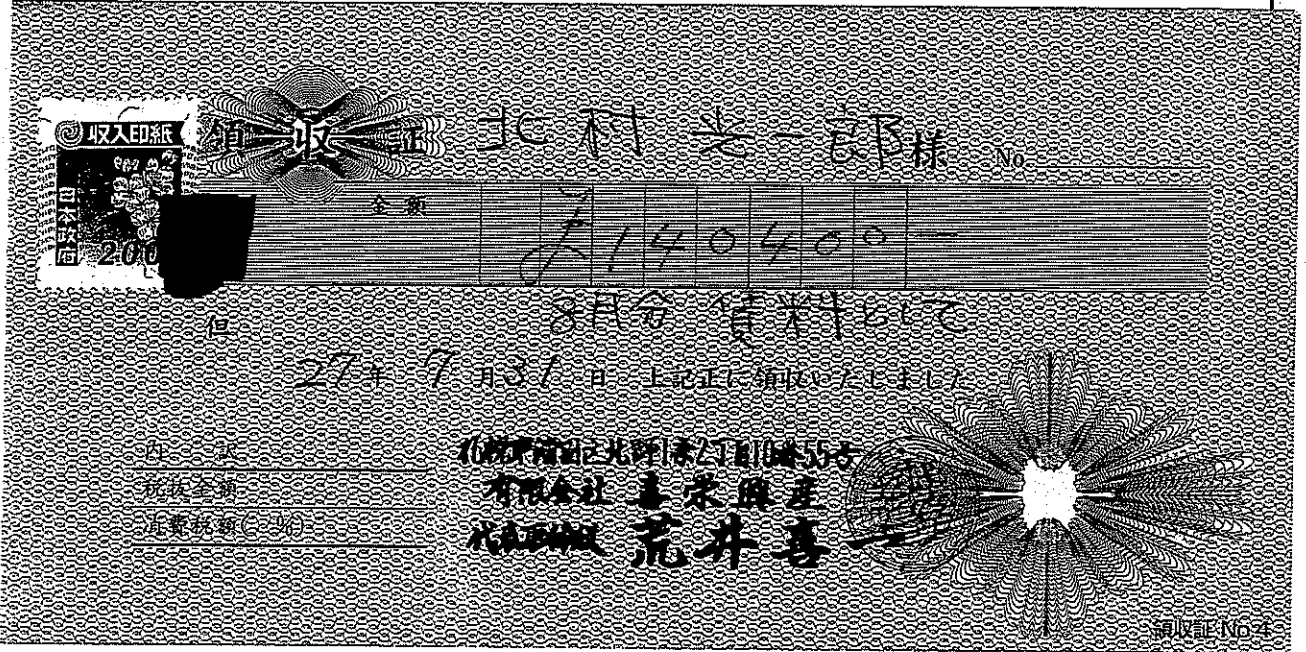 収入印紙
日本政府
200
領収証 北村光一郎様 No.
金額 ¥140400-
但 8月分賃料として
27年 7月31日 上記正に領収いたしました
内訳
税抜金額
消費税額( %)
2丁目10番55号
有限会社 喜栄興産
代表取締役 荒井喜一
領収証 No 4